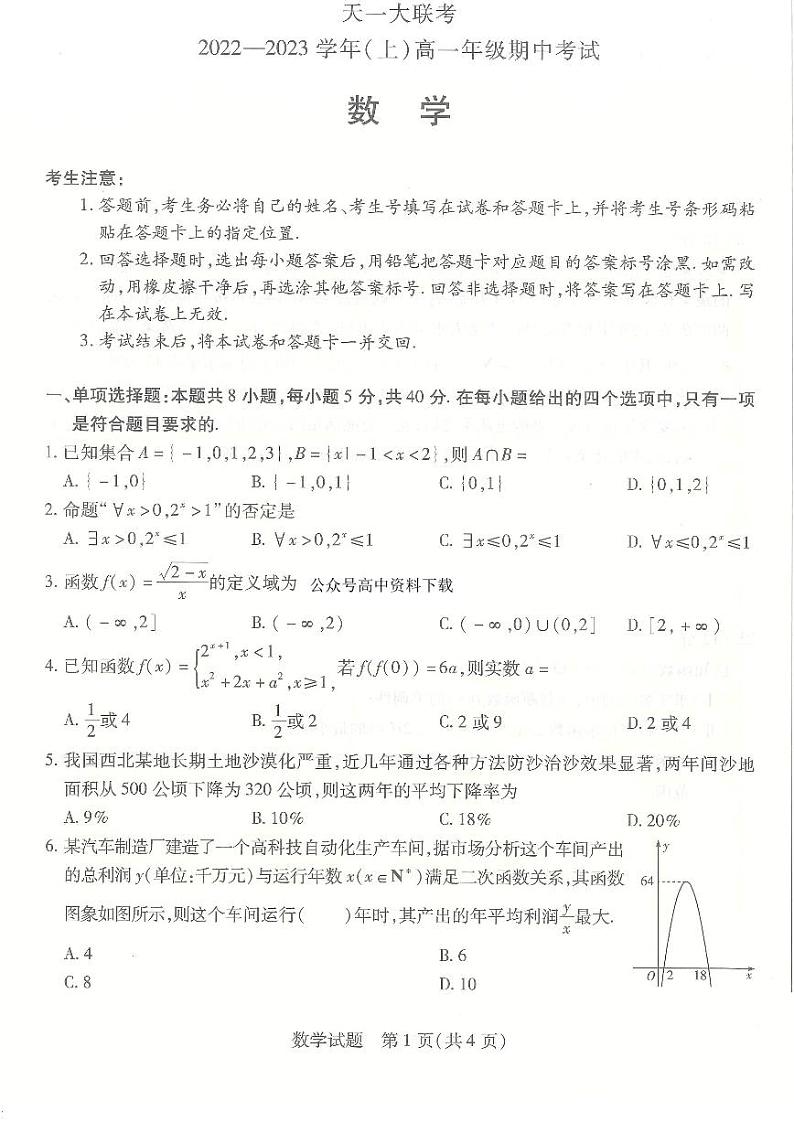 天一大联考
2022—2023 学年(上)高一年级期中考试
数 学
考生注意:
1. 答题前,考生务必将自己的姓名、考生号填写在试卷和答题卡上,并将考生号条形码粘
贴在答题卡上的指定位置.
2. 回答选择题时,选出每小题答案后,用铅笔把答题卡对应题目的答案标号涂黑. 如需改
动,用橡皮擦干净后,再选涂其他答案标号. 回答非选择题时,将答案写在答题卡上. 写
在本试卷上无效.
3. 考试结束后,将本试卷和答题卡一并交回.
一、单项选择题:本题共 8 小题,每小题 5 分,共 40 分. 在每小题给出的四个选项中,只有一项
是符合题目要求的.
1. 已知集合 A = { -1,0,1,2,3},B = {x| -1 < x < 2},则 A∩B =
A. { -1,0} B. { -1,0,1} C. {0,1} D. {0,1,2}
2. 命题“∀x > 0,2ˣ > 1”的否定是
A. ∃x > 0,2ˣ ≤ 1 B. ∀x > 0,2ˣ ≤ 1 C. ∃x ≤ 0,2ˣ ≤ 1 D. ∀x ≤ 0,2ˣ ≤ 1
3. 函数 f(x) = √(2 - x)/x 的定义域为 公众号高中资料下载
A. ( -∞ ,2] B. ( -∞ ,2) C. ( -∞ ,0)∪(0,2] D. [2, +∞ )
4. 已知函数 f(x) = {2ˣ⁺¹,x < 1, x² + 2x + a²,x ≥ 1, 若 f(f(0)) = 6a,则实数 a =
A. 1/2 或 4 B. 1/2 或 2 C. 2 或 9 D. 2 或 4
5. 我国西北某地长期土地沙漠化严重,近几年通过各种方法防沙治沙效果显著,两年间沙地
面积从 500 公顷下降为 320 公顷,则这两年的平均下降率为
A. 9% B. 10% C. 18% D. 20%
6. 某汽车制造厂建造了一个高科技自动化生产车间,据市场分析这个车间产出
的总利润 y(单位:千万元)与运行年数 x(x∈N*)满足二次函数关系,其函数
图象如图所示,则这个车间运行( )年时,其产出的年平均利润 y/x 最大.
A. 4 B. 6
C. 8 D. 10
y
64
O 2 18 x
数学试题 第 1 页(共 4 页)